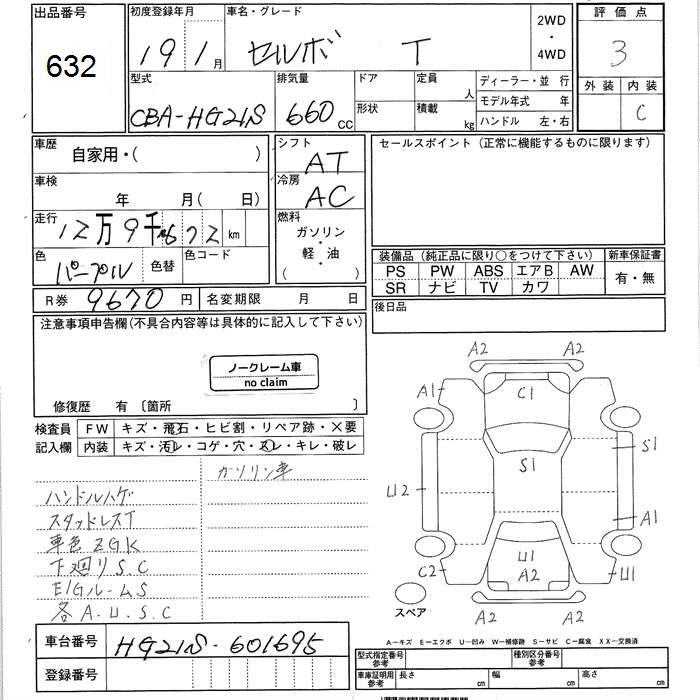 出品番号
632
初度登録年月
19 1月
車名・グレード
セルボ T
2WD
・
4WD
評価点
3
外装 内装
C
型式
CBA-HG21S
排気量
660 CC
ドア
形状
定員
人
積載
kg
ディーラー・並 行
モデル年式 年
ハンドル 左・右
車歴
自家用・( )
シフト
AT
セールスポイント (正常に機能するものに限ります)
車検
年 月( 日)
冷房
AC
走行
12万9千672 km
燃料
ガソリン
・
軽・油
( )
色
パープル
色替
色コード
装備品 (純正品に限り○をつけて下さい)
新車保証書
PS PW ABS エアB AW
有・無
SR ナビ TV カワ
R券 9670 円
名変期限 月 日
後日品
注意事項申告欄(不具合内容等は具体的に記入して下さい)
ノークレーム車
no claim
修復歴 有 〔箇所 〕
検査員
記入欄
FW キズ・飛石・ヒビ割・リペア跡・×要
内装 キズ・汚レ・コゲ・穴・スレ・キレ・破レ
ガソリン車
ハンドルハゲ
スタッドレスT
車色ZGK
下廻りS.C
E/GルームS
各A.U.S.C
A2 A2
A1 C1
S1 S1
U2
A1
C2 U1 U1
A2
A2 A2
スペア
A−キズ E−エクボ U−凹み W−補修跡 S−サビ C−腐食 XX−交換済
車台番号 HG21S-601695
登録番号
型式指定番号
参考
種別区分番号
参考
車庫証明用
参考
長さ cm 幅 cm 高さ cm